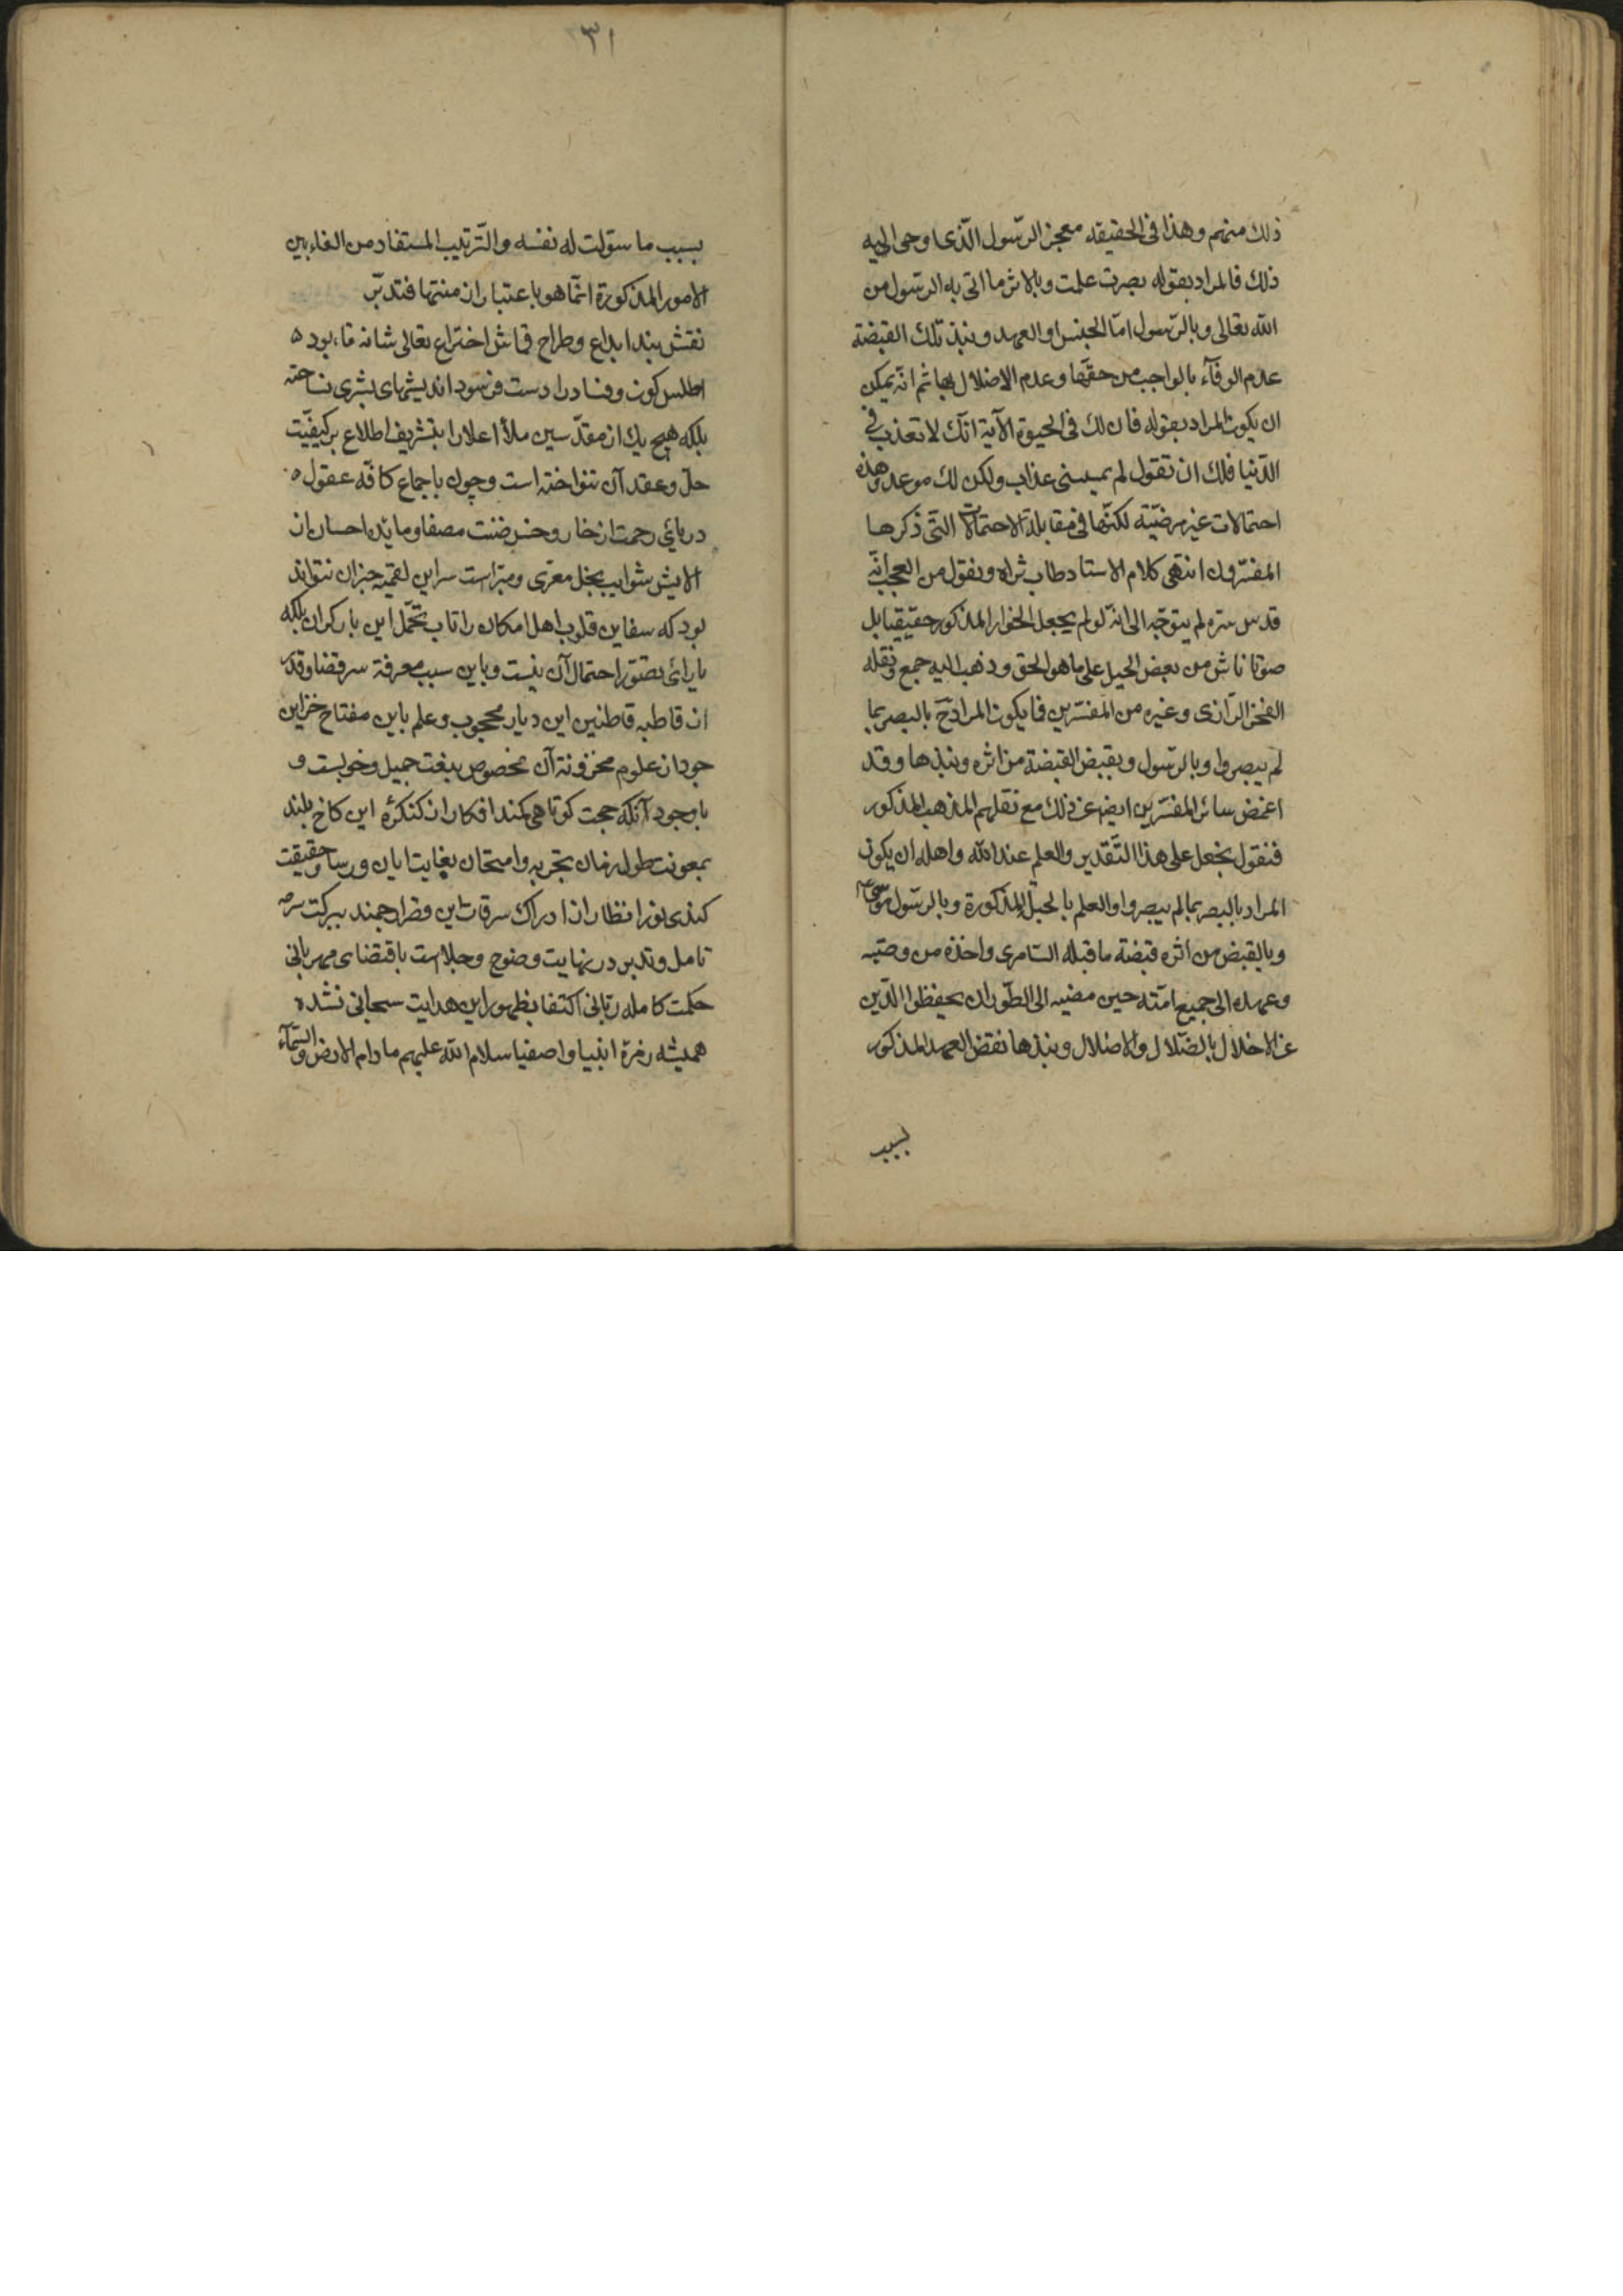 ذلك منهم وهذا فى الحقيقه معجز الرّسول الّذى اوحى اليه
ذلك فالمراد بقوله بصرت علمت وبالاثر ما اتى به الرّسول من
الله تعالى وبالرّسول امّا الجنس او العهد ونبذ تلك القبضة
عدم الوفآء بالواجب من حقّها وعدم الاضلال بها ثم انّه يمكن
ان يكون المراد بقوله فان لك فى الحيوة الآية انّك لا تعذب فى
الدّنيا فلك ان تقول لم يمسنى عذاب ولكن لك موعد وهذه
احتمالات غير مرضيّة لكنّها فى مقابلة الاحتمالات التّى ذكرها
المفسّرون انتهى كلام الاستاد طاب ثراه ونقول من العجب انّه
قدس سره لم يتوجّه الى انّه لو لم يجعل الخوار المذكور حقيقيا بل
صوتا ناش من بعض الحيل على ما هو الحق وذهب اليه جمع ونقله
الفخر الرّازى وغيره من المفسّرين فما يكون المراد ح بالبصر بما
لم يبصروا وبالرّسول وبقبض القبضة من اثره ونبذها وقد
اغمض سائر المفسّرين ايضا عن ذلك مع نقلهم المذهب المذكور
فنقول نجعل على هذا التّقدير والعلم عند الله واهله ان يكون
المراد بالبصر بما لم يبصروا والعلم بالحيل المذكورة وبالرّسول موسى
وبالقبض من اثره قبضة ما قبله السّامرى واخذه من وصيّه
وعهده الى جميع امّته حين مضيه الى الطّور ان يحفظوا الدّين
عن الاخلال بالضّلال والاضلال ونبذها نقض العهد المذكور
بسبب
٣١
بسبب ما سوّلت له نفسه والتّرتيب المستفاد من الفاء بين
الامور المذكورة انّما هو باعتبار ازمنتها فتدبّر
نقش بند ابداع وطراح قماش اختراع تعالى شانه تا بوده
اطلس كون وفساد را دست فرسود انديشهاى بشرى نساخته
بلكه هيچ يك از مقدّسين ملأ اعلا را بتشريف اطلاع بر كيفيّت
حلّ وعقد آن ننواخته است وچون باجماع كافّه عقول
درياى رحمت از خار وخس ضنت مصفا ومايده احسان از
الايش شوايب بخل معرّى ومبرّاست سر اين لقمه جز ان نتواند
بود كه سفاين قلوب اهل امكان را تاب تحمّل اين بار كران بلكه
ياراى تصوّر احتمال آن نيست وباين سبب معرفة سر قضا وقدر
از قاطبه قاطنين اين ديار محجوب وعلم باين مفتاح خزاين
جود از علوم مخزونة آن مخصوص بنعت جميل وخوبست و
باوجود آنكه حجت كوتاهى كمند افكار از كنكره اين كاخ بلند
بمعونت طول زمان تجربه وامتحان بغايت ...
كندى نور انظار از ادراك ... ببركت سرمه
تامل وتدبر در نهايت وضوح وجلاست باقتضاى مهربانى
حكمت كامله ربّانى اكتفا بظهور اين هدايت سبحانى نشده
هميشه زمرة انبيا واصفيا سلام الله عليهم ما دام الارض والسّمآء